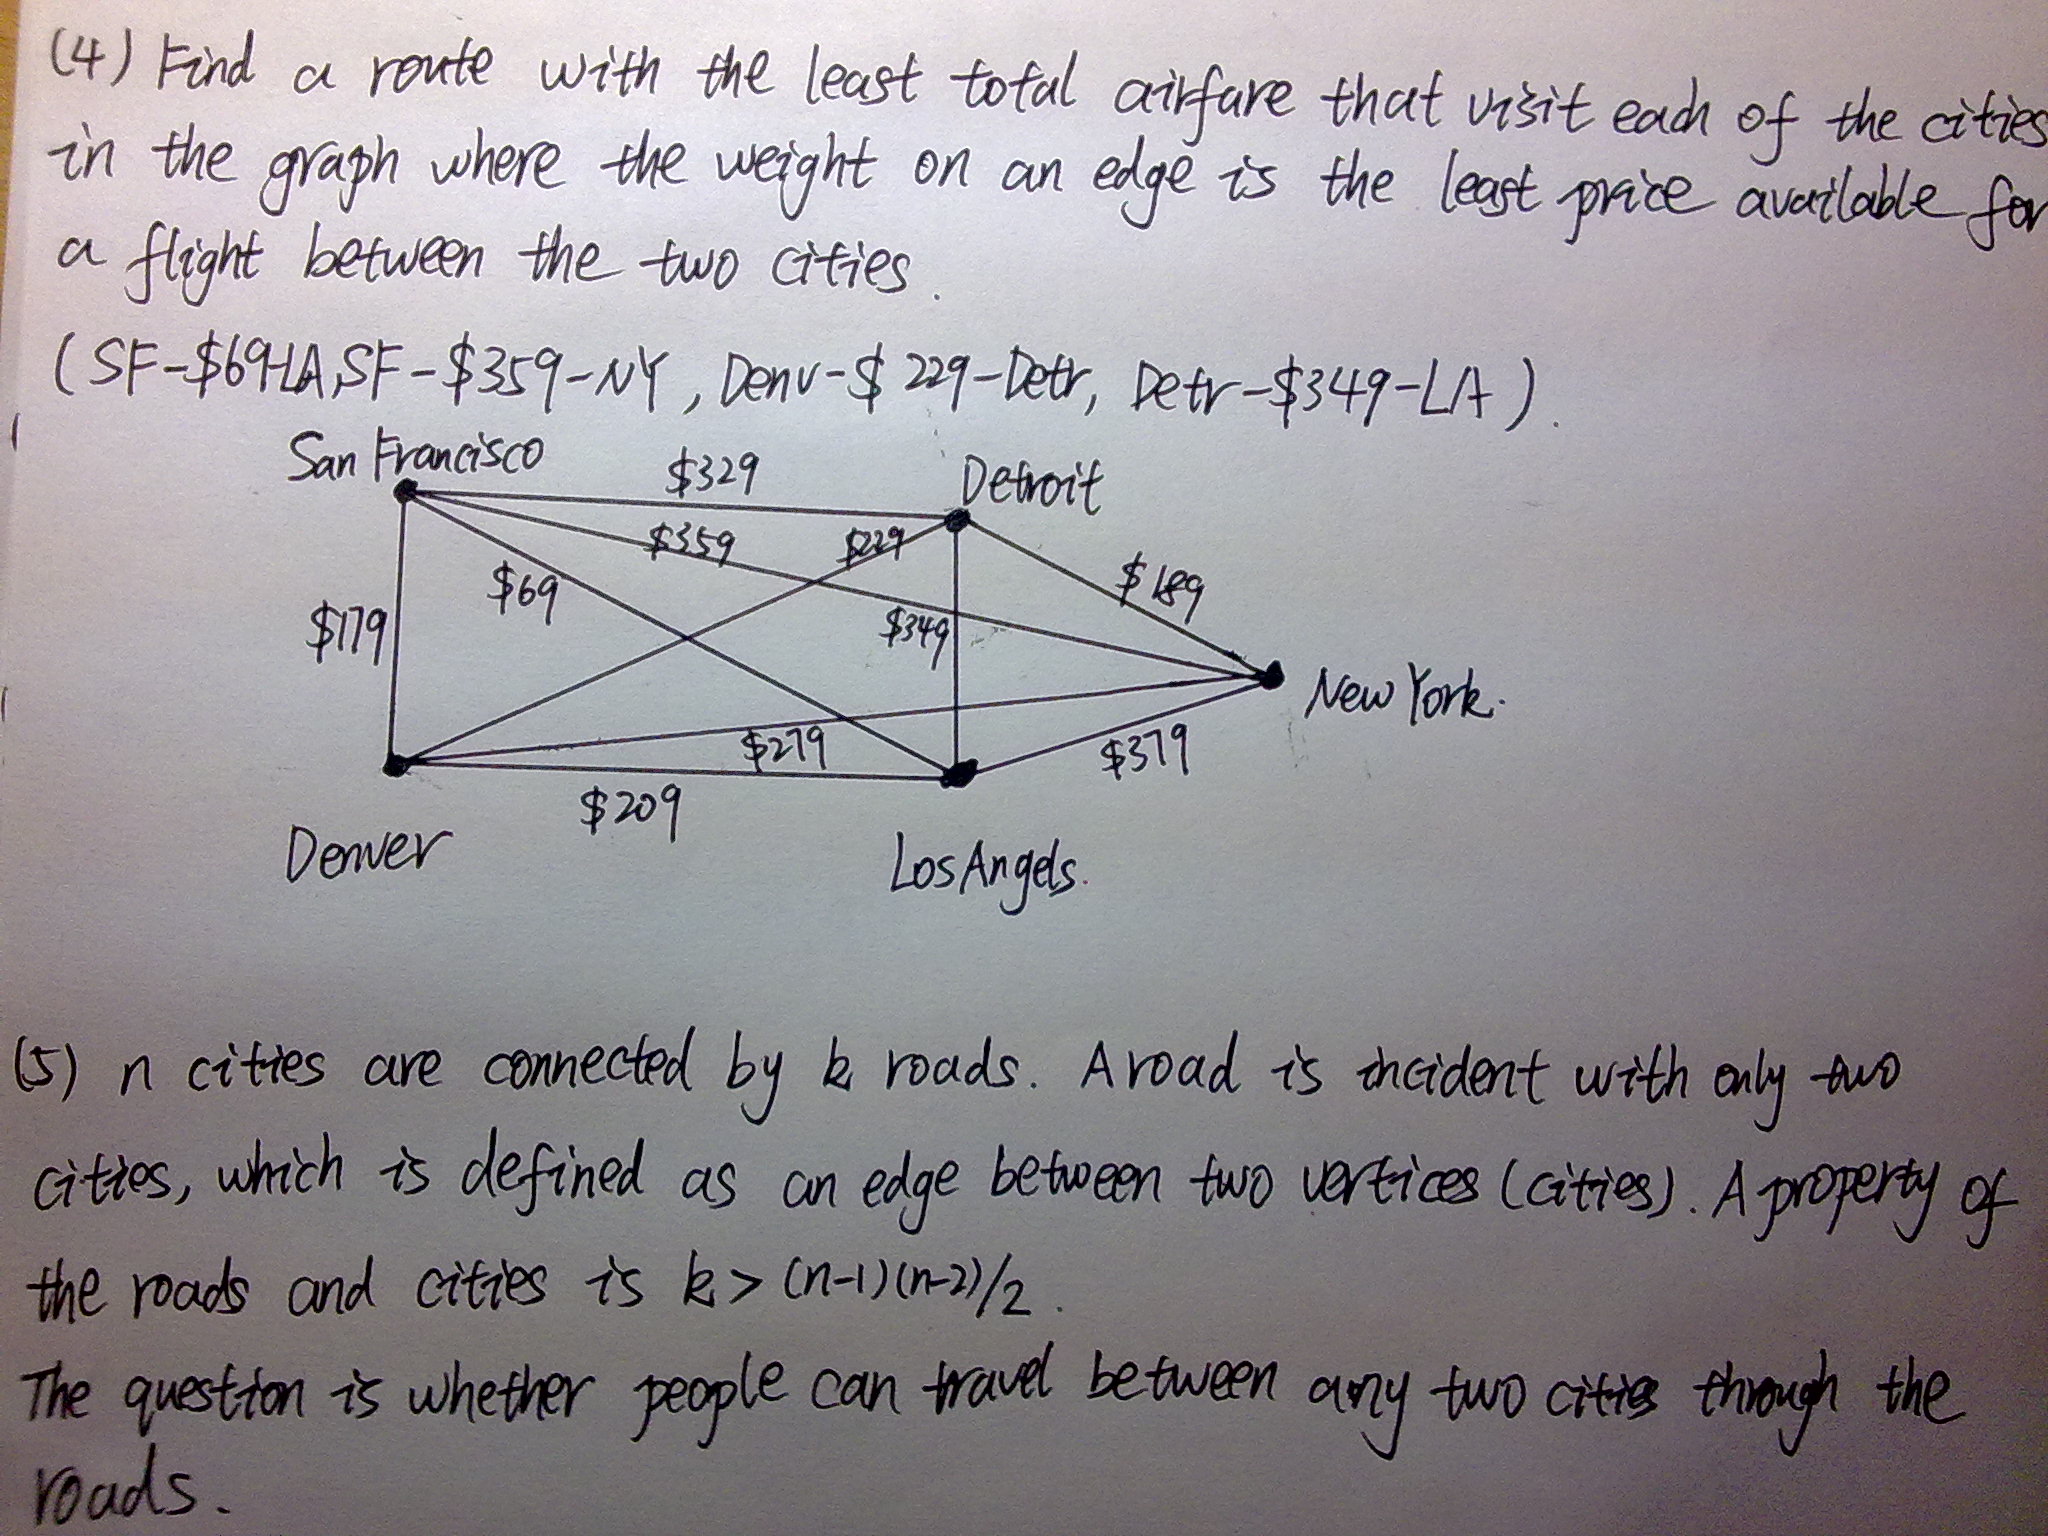 (4) Find a route with the least total airfare that visit each of the cities
in the graph where the weight on an edge is the least price available for
a flight between the two cities.
(SF-$69-LA, SF-$359-NY, Denv-$229-Detr, Detr-$349-LA).
San Francisco
$329
Detroit
$359
$229
$69
$189
$179
$349
New York.
$279
$379
$209
Denver
Los Angels.
(5) n cities are connected by k roads. A road is incident with only two
cities, which is defined as an edge between two vertices (cities). A property of
the roads and cities is k > (n-1)(n-2)/2.
The question is whether people can travel between any two cities through the
roads.